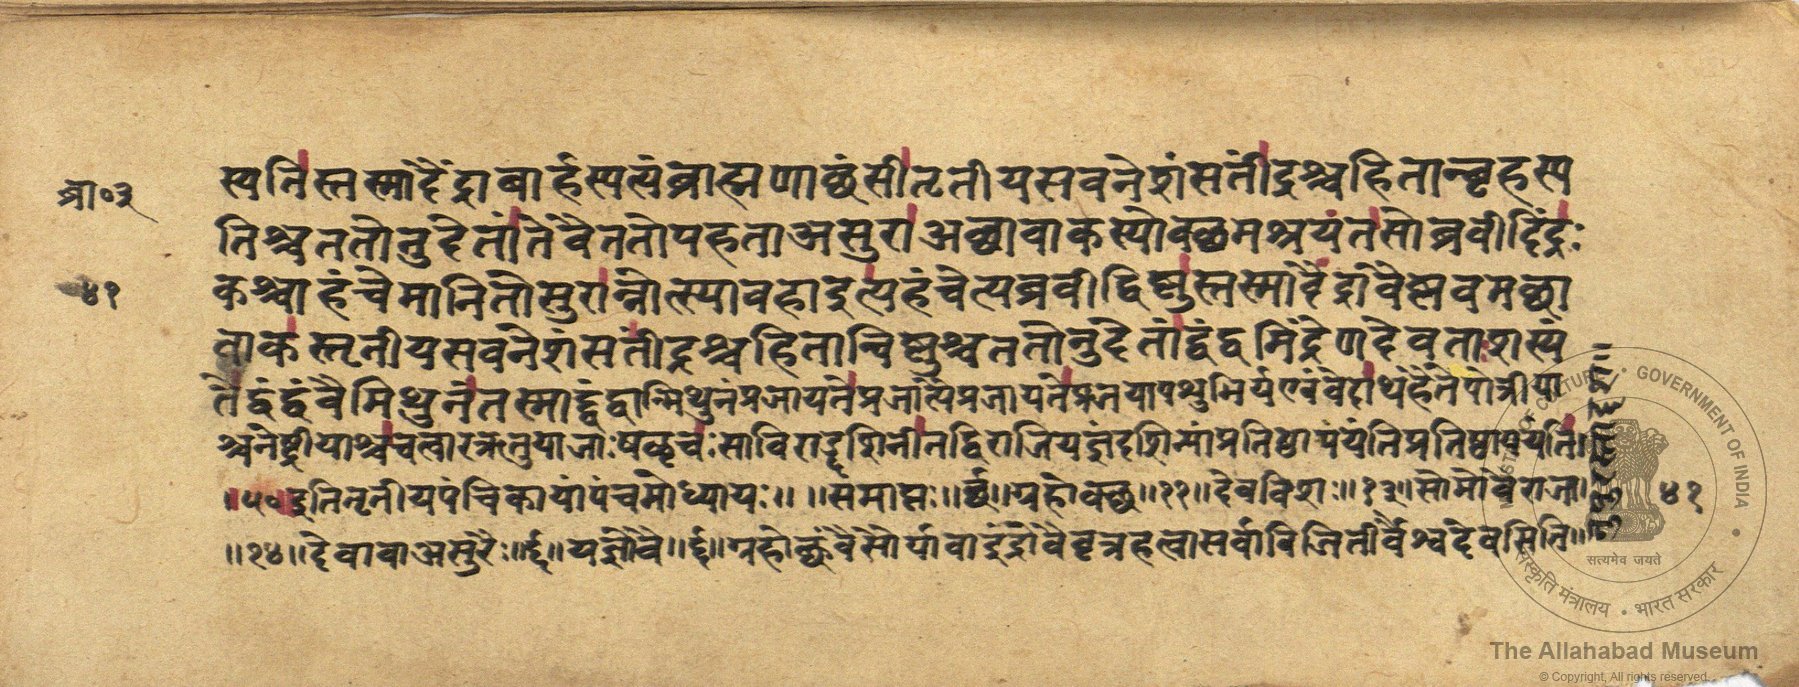 ब्रा॰३
स्पतिस्तस्मादैंद्राबार्हस्पत्यंब्राह्मणाछंसीतृतीयसवनेशंसतींद्रश्चहितान्बृहस्प
तिश्चततोनुदेतांतेवैततोपहताअसुराअछावाकस्योक्थमश्रयंतसोब्रवीदिंद्रः
४१
कश्चाहंचेमानितोसुरान्नोत्स्यावहाइत्यहंचेत्यब्रवीद्विष्णुस्तस्मादैंद्रावैष्णवमछा
वाकस्तृतीयसवनेशंसतींद्रश्चहितान्विष्णुश्चततोनुदेतांद्वंद्वमिंद्रेणदेवताःशस्यं
तेद्वंद्वंवैमिथुनंतस्माद्द्वंद्वान्मिथुनंप्रजायतेप्रजात्यैप्रजायतेप्रजयापशुभिर्यएवंवेदाथहैतेपोत्रीया
श्चनेष्ट्रीयाश्चचत्वारऋतुयाजाःषळृचःसाविराड्दशिनीतद्विराजियज्ञंदशिन्यांप्रतिष्ठापयंतिप्रतिष्ठापयंति॥
॥५०॥इतितृतीयपंचिकायांपंचमोध्यायः॥ ॥समाप्तः॥ ॥ग्रहोक्थ॥१२॥देवविशः॥१३॥सोमोवैराजा॥
४१
॥१४॥देवावाअसुरैः॥ ॥यज्ञोवै॥ ॥ग्रहोक्थंवैसौर्यावाइंद्रोवैवृत्रंहत्वासर्वाविजितीर्वैश्वदेवमिति॥
MINISTRY OF CULTURE • GOVERNMENT OF INDIA •
सत्यमेव जयते
संस्कृति मंत्रालय • भारत सरकार
The Allahabad Museum
© Copyright, All rights reserved.